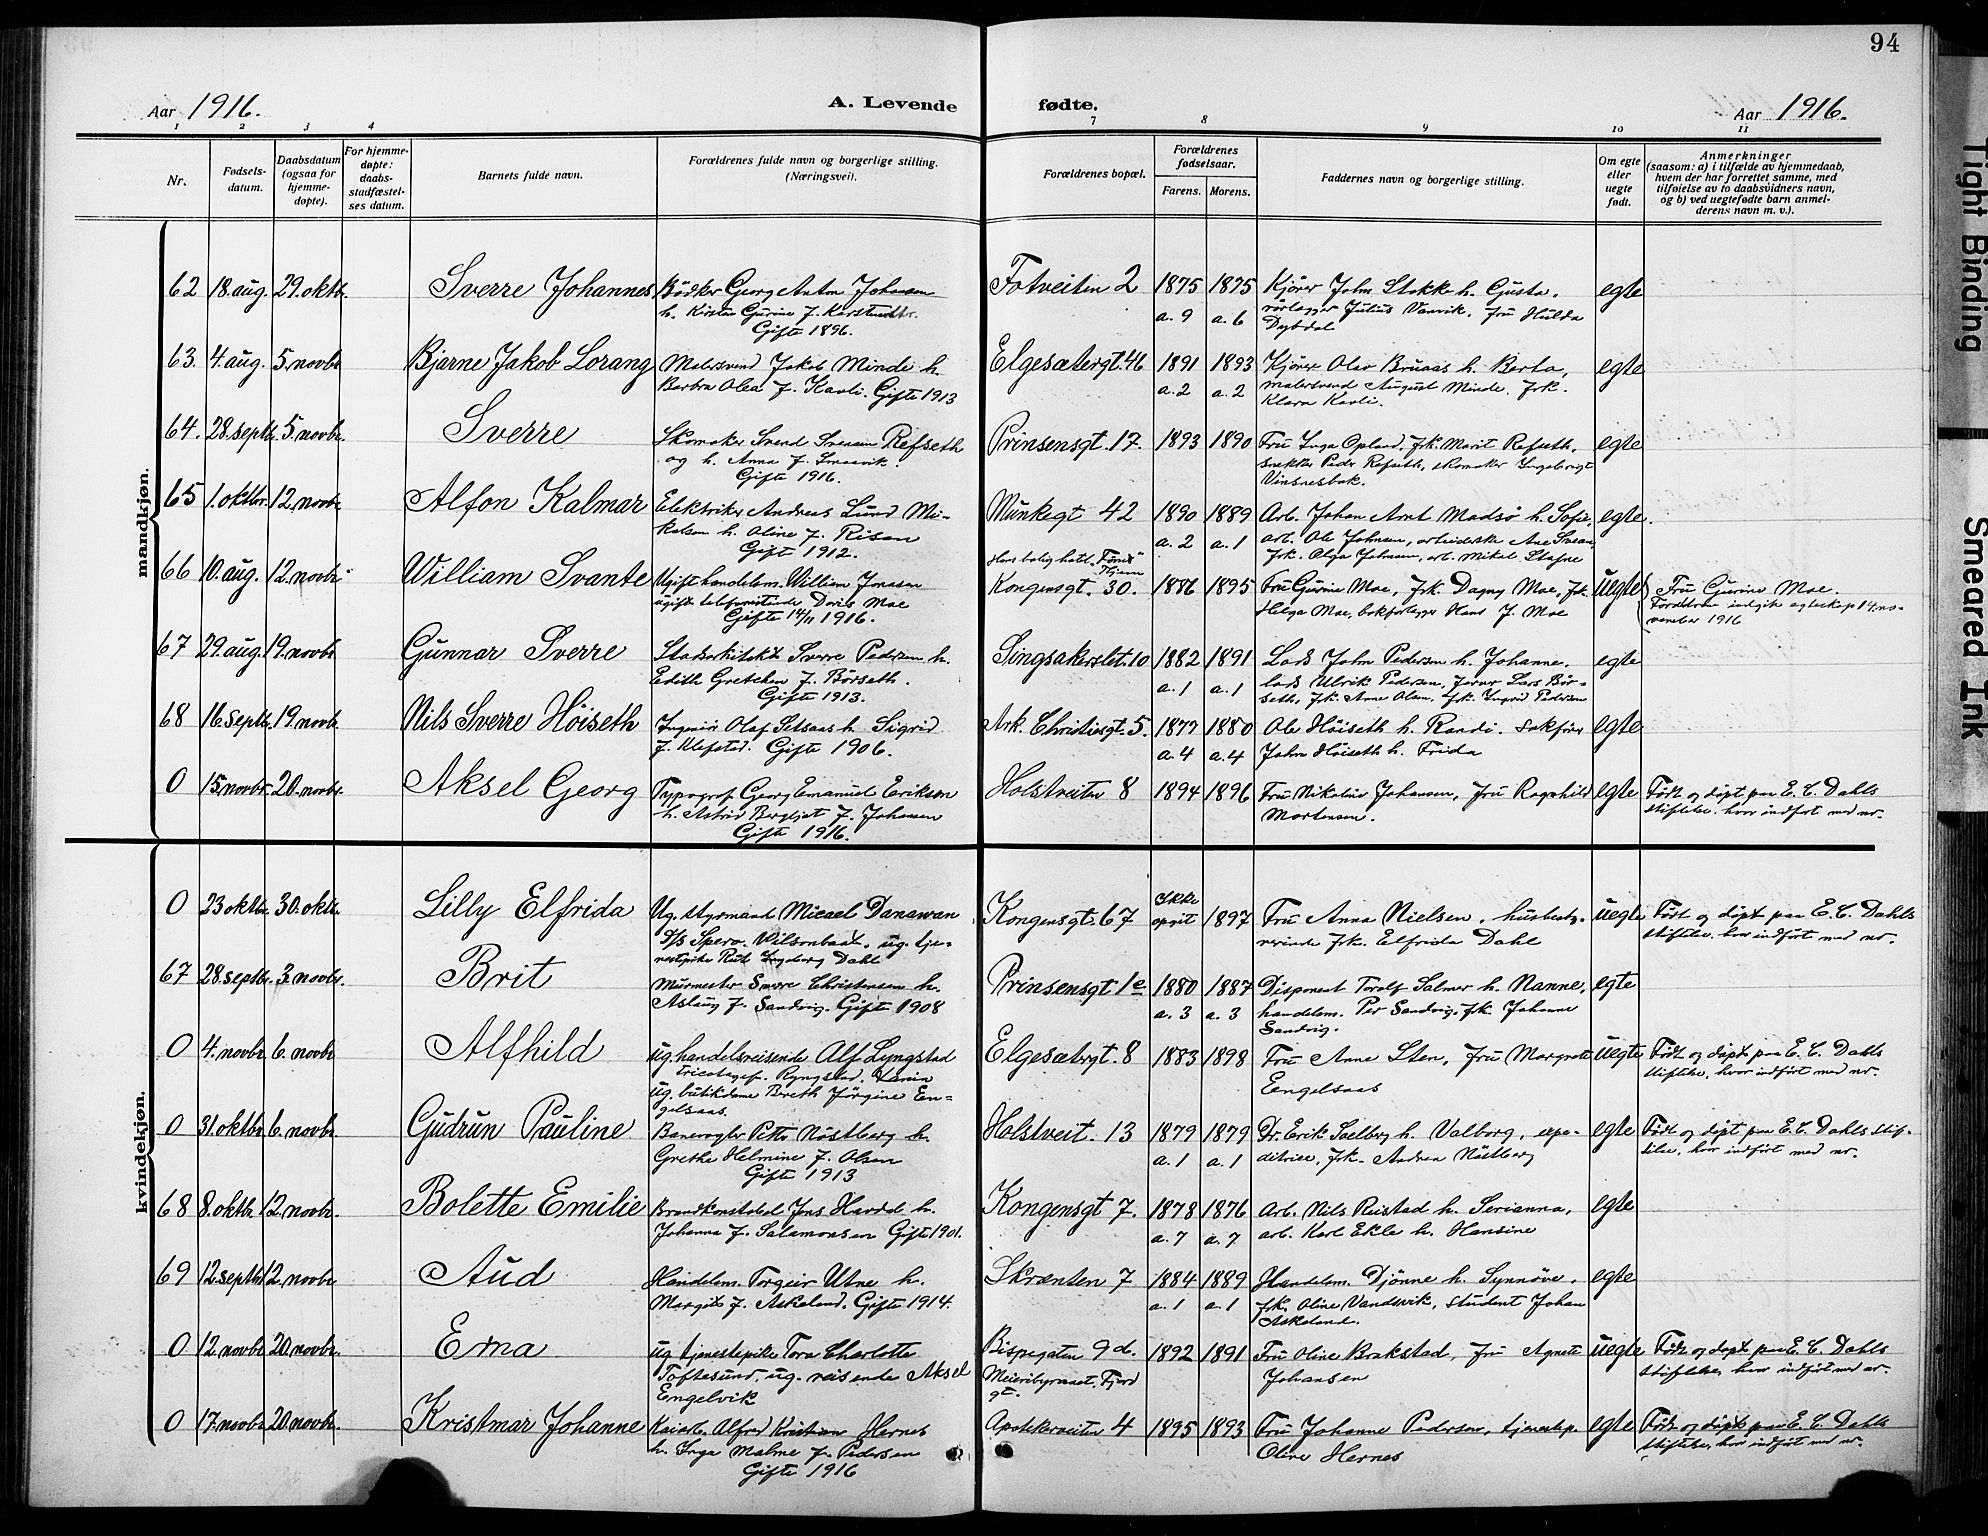 94
Aar 1916.
A. Levende fødte.
Aar 1916.
1 2 3 4 7 8 9 10 11
Nr.
Fødsels-
datum.
Daabsdatum
(ogsaa for
hjemme-
døpte).
For hjemme-
døpte:
daabs-
stadfæstel-
ses datum.
Barnets fulde navn.
Forældrenes fulde navn og borgerlige stilling.
(Næringsvei).
Forældrenes bopæl.
Forældrenes
fødselsaar.
Farens. Morens.
Faddernes navn og borgerlige stilling.
Om egte
eller
uegte
født.
Anmerkninger
(saasom: a) i tilfælde av hjemmedaab,
hvem der har forrettet samme, med
tilføielse av to daabsvidners navn,
og b) ved uegtefødte barn anmel-
derens navn m. v.).
mandkjøn.
62 18. aug. 29. oktb. Sverre Johannes Bødker Georg Anton Johansen Fotveiten 2 1875 1875 Kjører John Stokke h. Gusta, egte
h. Kirsten Gurine f. a. 9 a. 6 rørlægger Julius Vanvik, fru Hulda
Gifte 1896. Dybdal
63. 4. aug. 5. novbr. Bjarne Jakob Lorang Malersvend Jakob Minde h. Elgesætergt. 46 1891 1893 Kjører Olav Bruaas h. Berta, egte
Barbra Olea f. Kavli. Gifte 1913 a. 2 a. 2 malersvend August Minde, frk.
Klara Kavli.
64. 28. septb. 5. novbr. Sverre Skomaker Svend Svensen Refseth Prinsensgt. 17. 1893 1890 Fru Inga Opland, frk. Marit Refseth, egte
og h. Anna f. Smaavik. snekker Peder Refseth, skomaker Ingebrigt
Gifte 1916. Vinsnesbak.
65 1. oktbr. 12. novbr. Alfon Kalmar Elektriker Andreas Lund Mi- Munkegt 42 1890 1889 Arb. Johan Arnt Madsø h. Sofie, egte.
kalsen h. Oline f. Risan a. 2 a. 1 arb. Ole Johnsen, arbeiderske Ane
Gift 1912. frk. Olga Johnsen, arb. Mikal Stafne
66 10. aug. 12. novbr. William Svante Ugift handelsm. William Jonsson Kongensgt. 30. 1886 1895 Fru Gurine Moe, frk. Dagny Moe, frk. uegte Fru Gurine Moe.
ugift telefonistinde Doris Moe Helga Moe, bokforlægger Hans J. Moe Forældrene indgik egteskap 14. no-
Gifte 14/11 1916. vember 1916
67 29. aug. 19. novbr. Gunnar Sverre Stadsarkitekt Sverre Pedersen h. Singsakerslet. 10 1882 1891 Lods John Pedersen h. Johanne, egte
Edith Gretchen f. Børseth. a. 1 a. 1 lods Ulrik Pedersen, Lars Bør-
Gifte 1913. seth, frk. Anne Olsen, frk. Ingrid Pedersen
68 16. septb. 19. novb. Nils Sverre Höiseth Ingeniør Olaf Setsaas h. Sigrid Ark. Christiesgt. 5. 1877 1880 Ole Höiseth h. Randi. Sakfører egte
f. Klefstad. Gifte 1906. a. 4 a. 4 John Höiseth h. Frida
0 15. novbr. 20. novbr. Aksel Georg Typograf Georg Emanuel Erikson Holstveiten 8 1894 1896 Fru Nikoline Johansen, fru Ragnhild egte Født og døpt paa E. C. Dahls
h. Astrid Bergljot f. Johansen Mortensen. stiftelse, hvor indført med nr.
Gifte 1916.
kvindekjøn.
0 23 oktbr. 30. oktb. Lilly Elfrida Ug. styrmand Micael Danawan Kongensgt. 67 Ikke 1897 Fru Anna Nielsen, husbesty- uegte Født og døpt paa E. C. Dahls
D/S Spero. ug. tje- opgit rerinde frk. Elfrida Dahl stiftelse, hvor indført med nr.
nestpike Rut Ingeborg Dahl
67 28. septbr. 3. novbr. Brit Murmester Sverre Christensen h. Prinsensgt 1e 1880 1887 Disponent Toralf Salmer h. Nanne, egte
Aslaug f. Sandvig. Gifte 1908 a. 3 a. 3 handelsm. Per Sandvig, frk. Johanne
Sandvig.
0 4. novbr. 6. novbr. Alfhild ug. handelsreisende Alf Lyngstad Elgesætergt. 8 1883 1898 Fru Anne Sten, fru Margrete uegte Født og døpt paa E. C. Dahls
ug. butikdame Bereth Jörgine En- Eengelsaas stiftelse, hvor indført med nr.
gelsaas.
0 31. oktbr. 6. novbr. Gudrun Pauline Banevogter Petter Nöstberg h. Holstveit. 13 1879 1879 Dr. Erik Solberg h. Valborg, expe- egte Født og døpt paa E. C. Dahls stif-
Grethe Helmine f. Olsen a. 1 a. 1 ditrice, frk. Andrea Nöstberg telse, hvor indført med nr.
Gifte 1913
68 8. oktbr. 12. novbr. Bolette Emilie Brandkonstabel Jens Havdal h. Kongensgt 7. 1878 1876 Arb. Nils Reistad h. Serianna, egte
Johanna f. Salamonsen Gifte 1901. a. 7 a. 7 arb. Karl Ekle h. Hansine
69 12. septbr. 12. novbr. Aud Handelsm. Torgeir Utne h. Skrænten 7 1884 1889 Handelsm. Djönne h. Synnöve, egte
Margit f. Askeland. Gifte 1914. a. 1 a. 1 frk. Oline Vandsvik, student Johan
Askeland.
0 12 novbr 20. novbr. Erna ug. tjenestepike Tora Charlotte Bispegaten 9 d. 1892 1891 Fru Oline Brakstad, fru Agnete uegte Født og døpt paa E. C. Dahls
Toftesund, ug. reisende Aksel Johansen stiftelse, hvor indført med nr.
Engelvik gt.
0 17. novbr 20. novbr. Kristmar Johanne Kaiarb. Alfred Kristian Hernes Apotekerveiten 4 1895 1893 Fru Johanne Pedersen, tjenestep. egte Født og døpt paa E. C. Dahls
h. Inga Malme f. Pedersen Oline Hernes stiftelse, hvor indført med nr.
Gifte 1916
Tight Binding
Smeared Ink